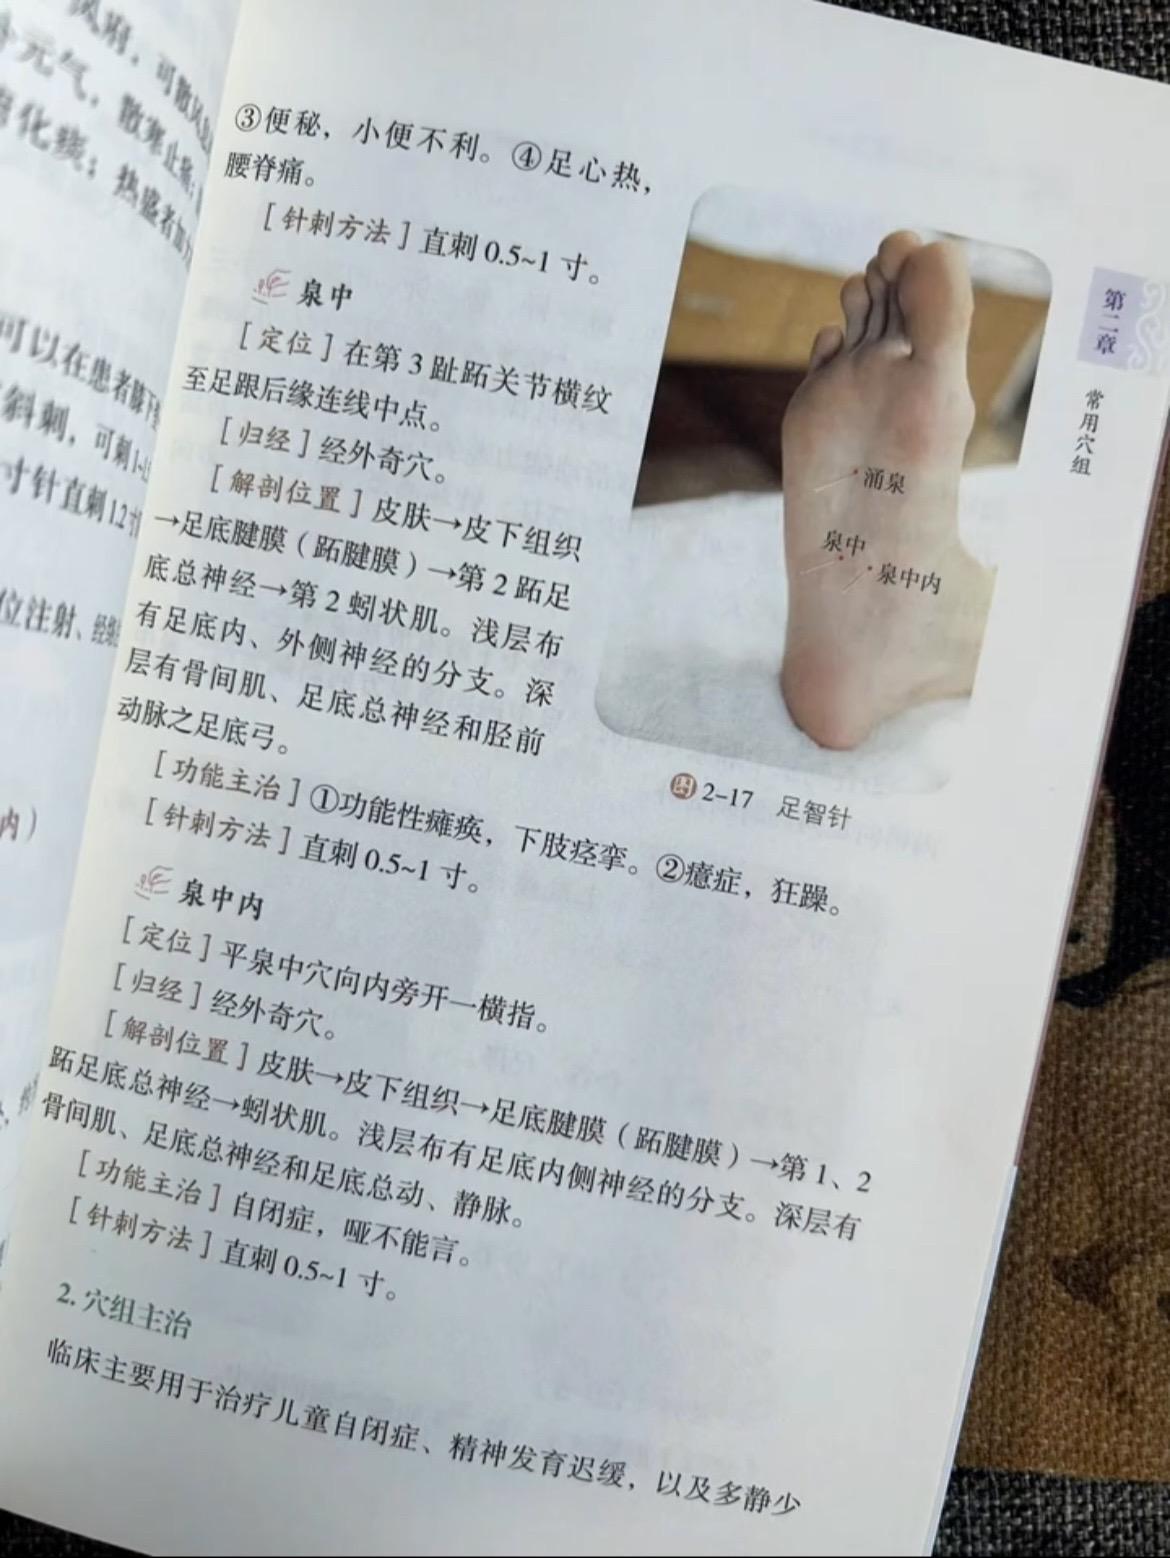 风府，可散风
补元气，散寒止痛；
化痰；热盛者加
可以在患者
斜刺，可刺1~
寸针直刺1.2
位注射、经络
内）
③便秘，小便不利。④足心热，
腰脊痛。
［针刺方法］直刺0.5~1寸。
泉中
［定位］在第3趾跖关节横纹
至足跟后缘连线中点。
［归经］经外奇穴。
［解剖位置］皮肤→皮下组织
→足底腱膜（跖腱膜）→第2跖足
底总神经→第2蚓状肌。浅层布
有足底内、外侧神经的分支。深
层有骨间肌、足底总神经和胫前
动脉之足底弓。
［功能主治］①功能性瘫痪，下肢痉挛。②癔症，狂躁。
［针刺方法］直刺0.5~1寸。
泉中内
［定位］平泉中穴向内旁开一横指。
［归经］经外奇穴。
［解剖位置］皮肤→皮下组织→足底腱膜（跖腱膜）→第1、2
跖足底总神经→蚓状肌。浅层布有足底内侧神经的分支。深层有
骨间肌、足底总神经和足底总动、静脉。
［功能主治］自闭症，哑不能言。
［针刺方法］直刺0.5~1寸。
2. 穴组主治
临床主要用于治疗儿童自闭症、精神发育迟缓，以及多静少
涌泉
泉中
泉中内
图2-17 足智针
第二章
常用穴组